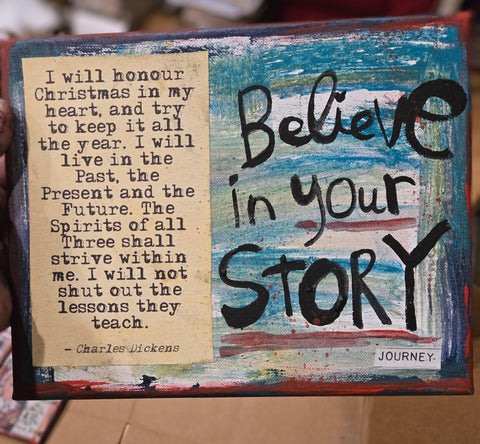 I will honour
Christmas in my
heart, and try
to keep it all
the year. I will
live in the
Past, the
Present and the
Future. The
Spirits of all
Three shall
strive within
me. I will not
shut out the
lessons they
teach.
– Charles Dickens
BelievE
in your
STORY
JOURNEY.